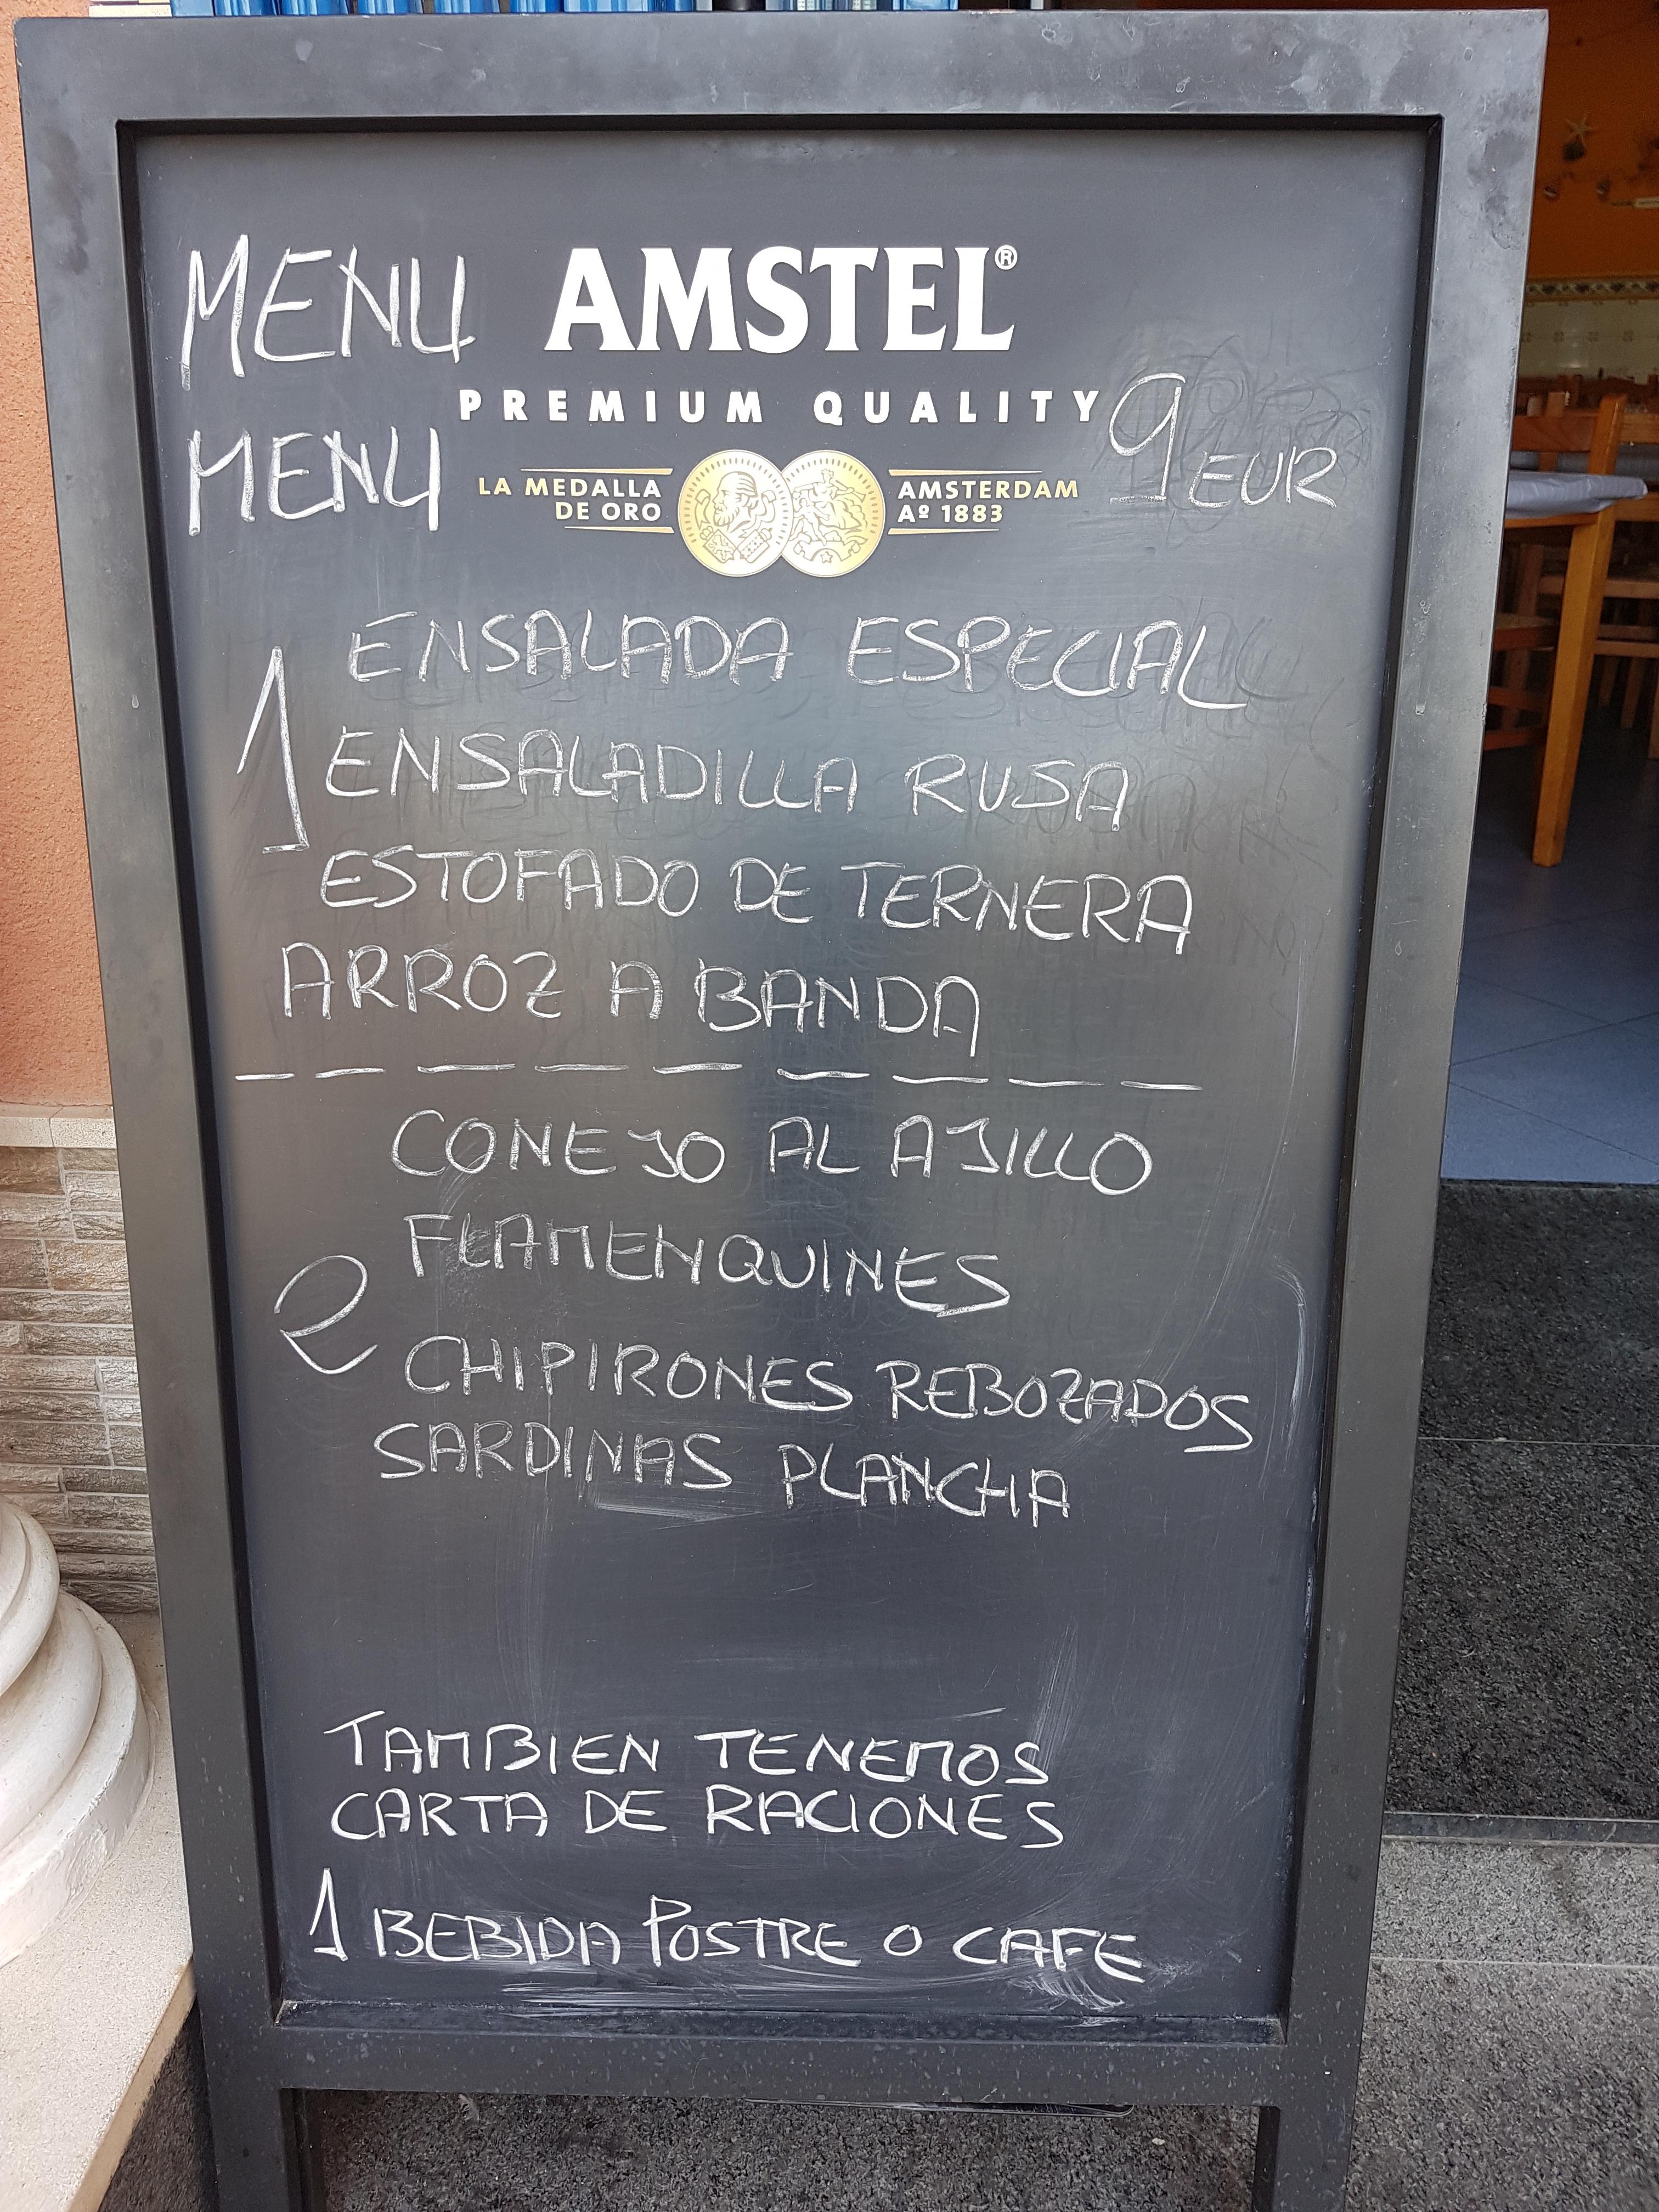 MENU AMSTEL®
PREMIUM QUALITY
MENU
9 EUR
LA MEDALLA
DE ORO
AMSTERDAM
Aº 1883
1
ENSALADA ESPECIAL
ENSALADILLA RUSA
ESTOFADO DE TERNERA
ARROZ A BANDA
2
CONEJO AL AJILLO
FLAMENQUINES
CHIPIRONES REBOZADOS
SARDINAS PLANCHA
TAMBIEN TENEMOS
CARTA DE RACIONES
1 BEBIDA POSTRE O CAFE